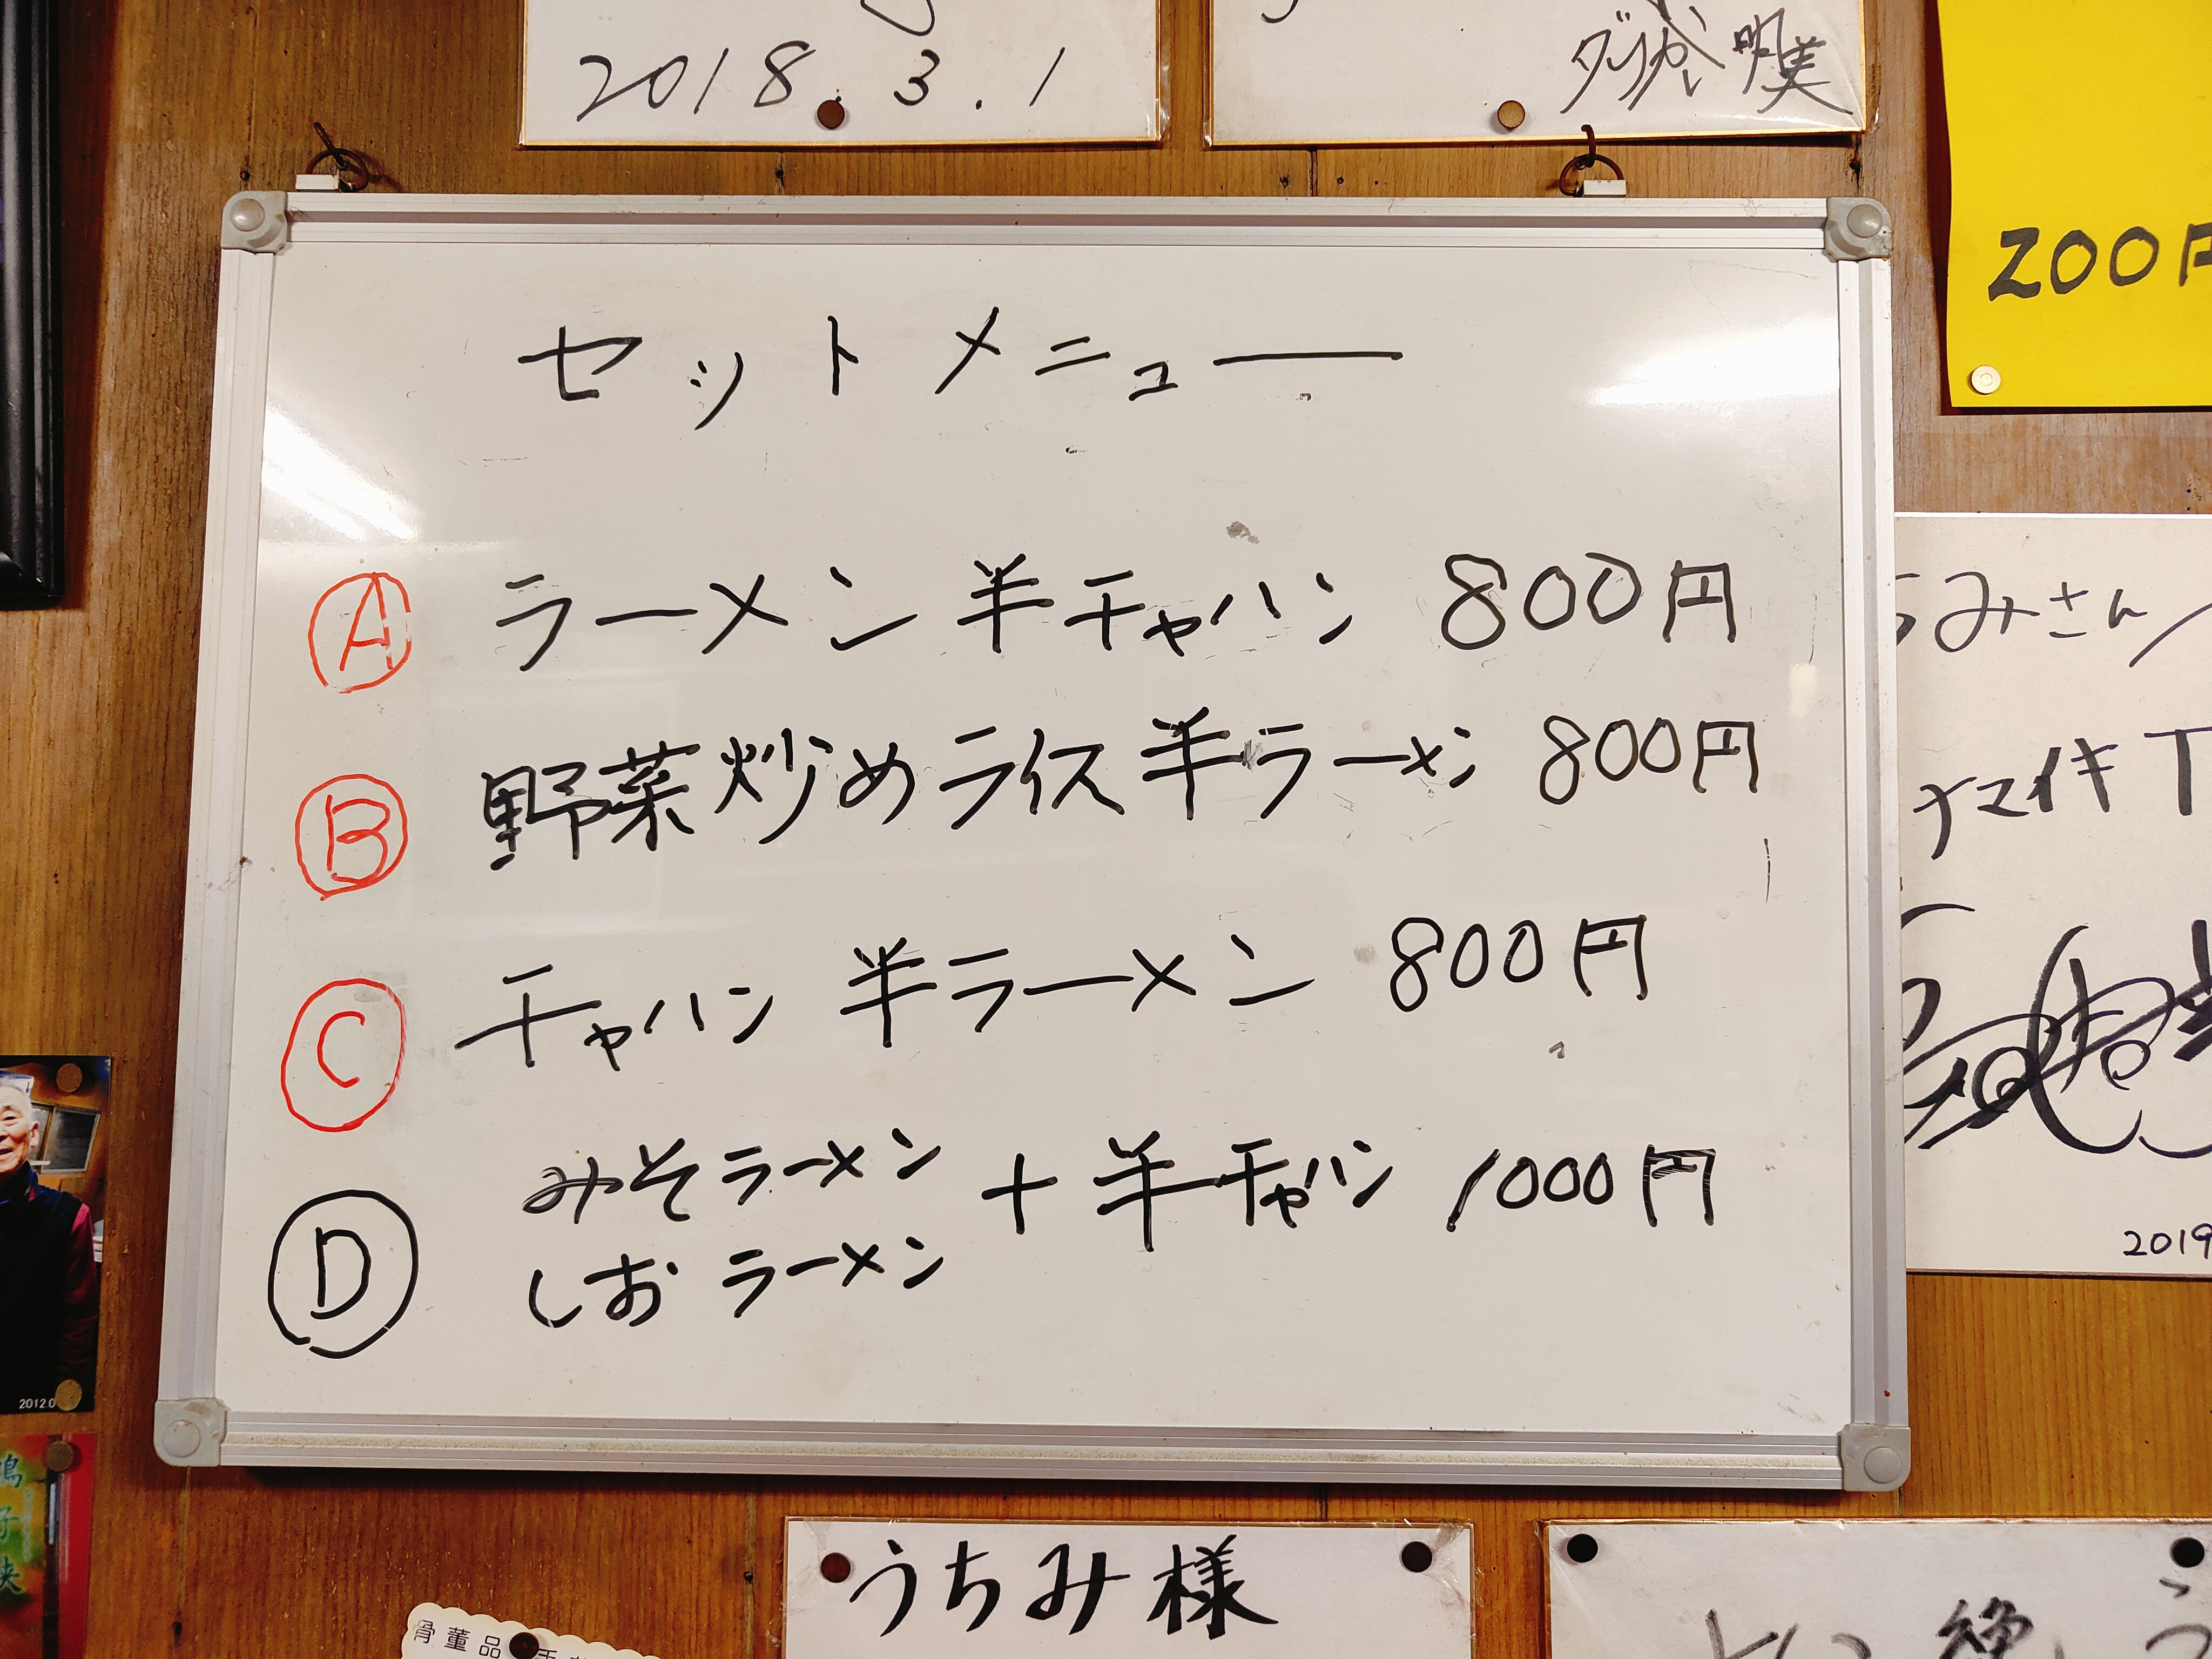 2018.3.1
ダンカン 明美
200円
セットメニュー
Ⓐ ラーメン 半チャハン 800円
Ⓑ 野菜炒めライス半ラーメン 800円
Ⓒ チャハン 半ラーメン 800円
Ⓓ みそラーメン + 半チャハン 1000円
しおラーメン
ちみさん
ナマイキT
2019
2012 0
うちみ様
骨董品